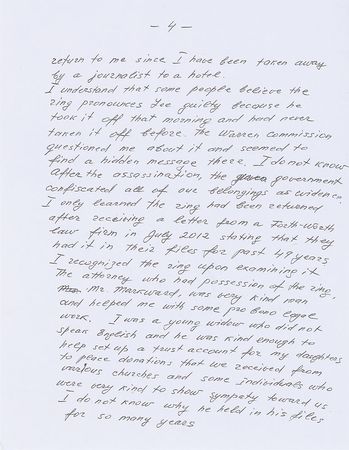 — 4 —
return to me since I have been taken away
by a journalist to a hotel.
I understand that some people believe the
ring pronounces Lee guilty because he
took it off that morning and had never
taken it off before. The Warren Commission
questioned me about it and seemed to
find a hidden message there. I do not know
After the assossination, the government
confiscated all of our belongings as widence.
I only learned the ring had been returned
after receiving a letter from a Forth-Worth
law firm in July 2012 stating that they
had it in their files for past 49 years
I recognized the ring upon examining it
The attorney who had possession of the ring,
Mr. Markward, was very kind man
and helped me with some pro bono legal
work. I was a young widow who did not
speak English and he was kind enough to
help set up a trust account for my daughters
to place donations that we received from
various churches and some individuals who
were very kind to show sympaty toward us
I do not know why he held in his files
for so many years